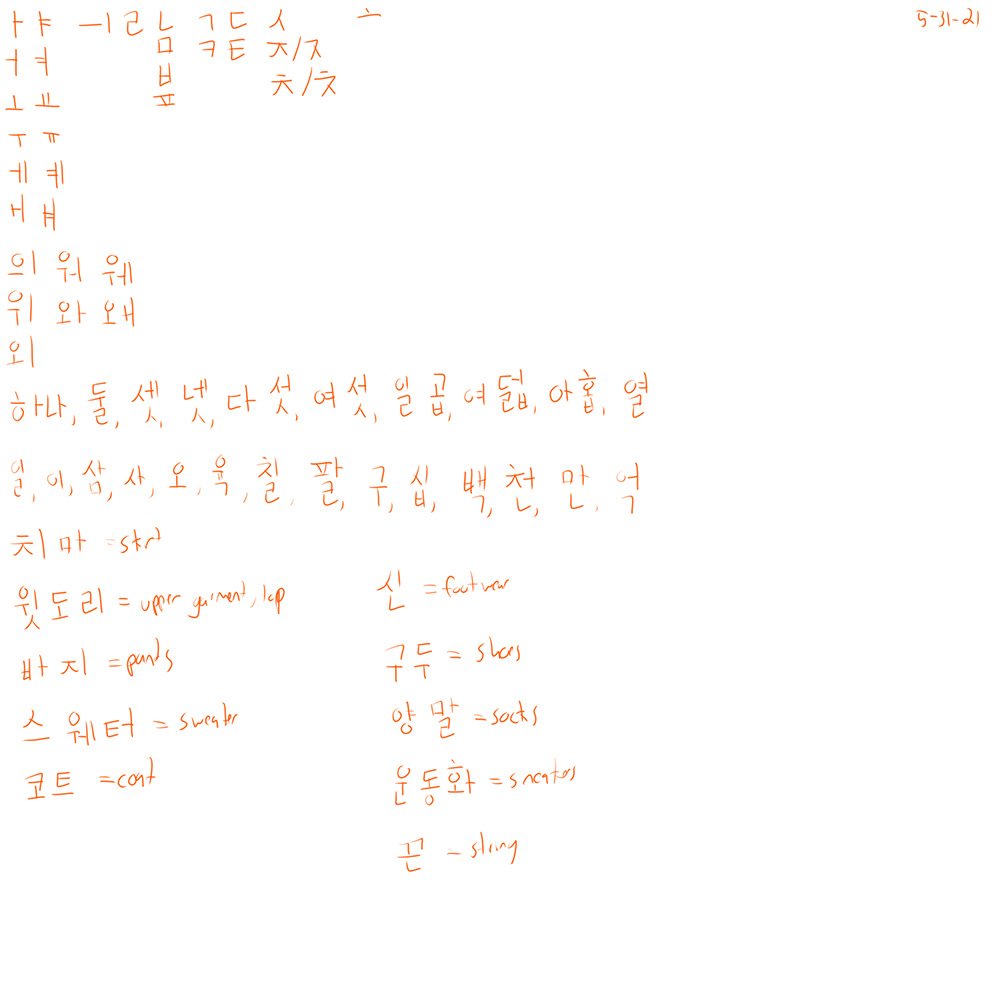 ㅏ ㅑ ㅡ ㅣ ㄹ ㄴ ㄱ ㄷ ㅅ ㅗ 5-31-21
ㅓ ㅕ ㅁ ㅋ ㅌ ㅈ/ㅈ
ㅂ ㅊ/ㅊ
ㅗ ㅛ ㅍ
ㅜ ㅠ
ㅔ ㅖ
ㅐ ㅒ
의 워 웨
위 와 왜
외
하나, 둘, 셋, 넷, 다섯, 여섯, 일곱, 여덟, 아홉, 열
일, 이, 삼, 사, 오, 육, 칠, 팔, 구, 십, 백, 천, 만, 억
치마 =skirt
윗도리 = upper garment, top
신 = footwear
바지 =pants
구두 = shoes
스웨터 = sweater
양말 =socks
코트 =coat
운동화 = sneakers
끈 - string